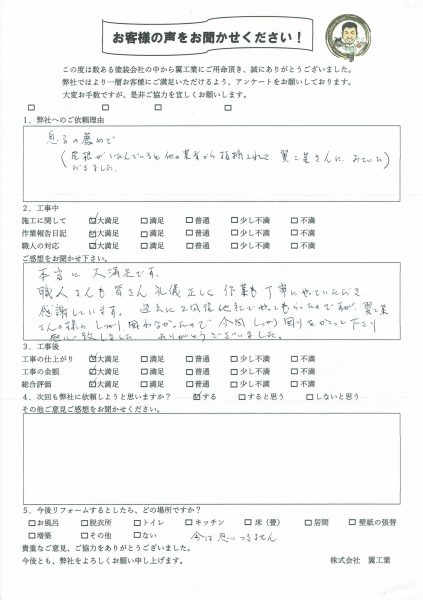 お客様の声をお聞かせください！
この度は数ある塗装会社の中から翼工業にご用命頂き、誠にありがとうございました。
弊社ではより一層お客様にご満足いただけるよう、アンケートをお願いしております。
大変お手数ですが、是非ご協力を宜しくお願いします。
□ □ □ □
1．弊社へのご依頼理由
息子の薦めで
(屋根がいたんでいると他の業者から指摘されて 翼工業さんに
だきました。
2．工事中
施工に関して ☑大満足 □満足 □普通 □少し不満 □不満
作業報告日記 ☑大満足 □満足 □普通 □少し不満 □不満
職人の対応 ☑大満足 □満足 □普通 □少し不満 □不満
ご感想をお聞かせ下さい。
本当に 大満足です。
職人さんも皆さん 礼儀正しく 作業も丁寧にやっていただき
感謝しています。 過去に2回程他社でやってもらったのですが、翼工業
さんの様に しっかり 囲わなかったので 今回 しっかり 囲いをかこって下さり
感心致しました。 ありがとうございました。
3．工事後
工事の仕上がり ☑大満足 □満足 □普通 □少し不満 □不満
工事の金額 ☑大満足 □満足 □普通 □少し不満 □不満
総合評価 ☑大満足 □満足 □普通 □少し不満 □不満
4．次回も弊社に依頼しようと思いますか？ ☑する □すると思う □しないと思う
その他ご意見ご感想をお聞かせください。
5．今後リフォームするとしたら、どの場所ですか？
□お風呂 □脱衣所 □トイレ □キッチン □床（畳） □居間 □壁紙の張替
□増築 □その他 □ない 今は思いつきません
貴重なご意見、ご協力をありがとうございました。
今後とも、弊社をよろしくお願い申し上げます。 株式会社 翼工業